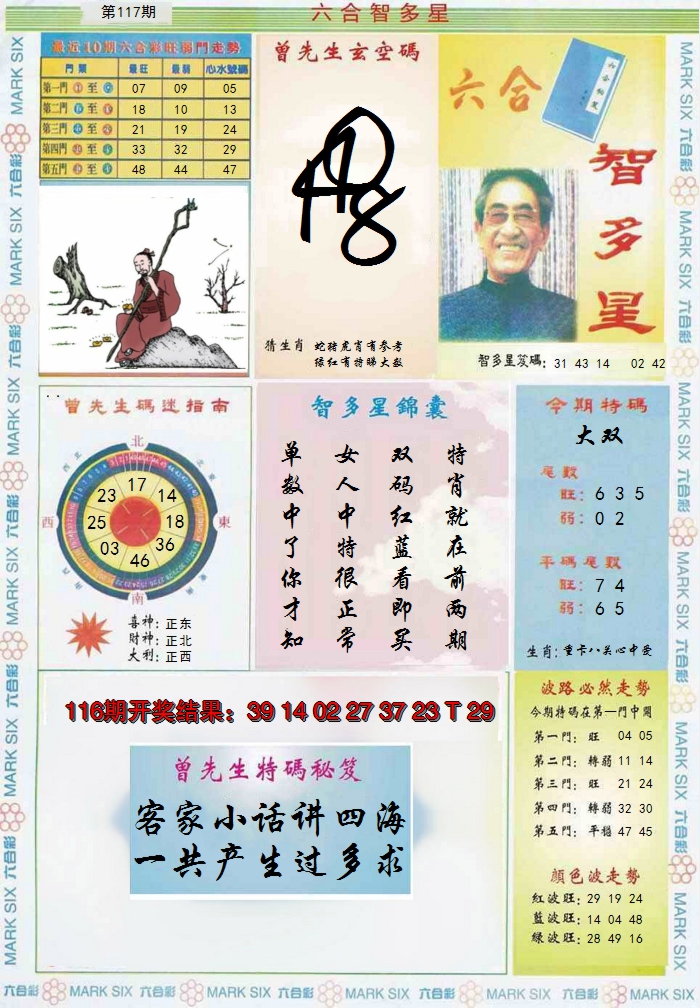 第117期
六合智多星
最近10期六合彩旺弱門走勢
門類 最旺 最弱 心水號碼
第一門 至 07 09 05
第二門 至 18 10 13
第三門 至 21 19 24
第四門 至 33 32 29
第五門 至 48 44 47
曾先生玄空碼
猜生肖 蛇猪虎肖有参考
绿红有特睇大数
六合
智多星
智多星笈碼: 31 43 14 02 42
曾先生碼迷指南
北
西
東
南
17
14
18
36
46
03
25
23
喜神: 正东
财神: 正北
大利: 正西
智多星錦囊
特肖就在前两期
双码红蓝看即买
女人中特很正常
单数中了你才知
今期特碼
大双
尾數
旺: 6 3 5
弱: 0 2
平碼尾數
旺: 7 4
弱: 6 5
生肖: 重卡八关心中受
116期开奖结果: 39 14 02 27 37 23 T 29
曾先生特碼秘笈
客家小话讲四海
一共产生过多求
波路必然走勢
今期特碼在第一門中開
第一門: 旺 04 05
第二門: 轉弱 11 14
第三門: 旺 21 24
第四門: 轉弱 32 30
第五門: 平穩 47 45
顏色波走勢
紅波旺: 29 19 24
藍波旺: 14 04 48
綠波旺: 28 49 16
MARK SIX 六合彩